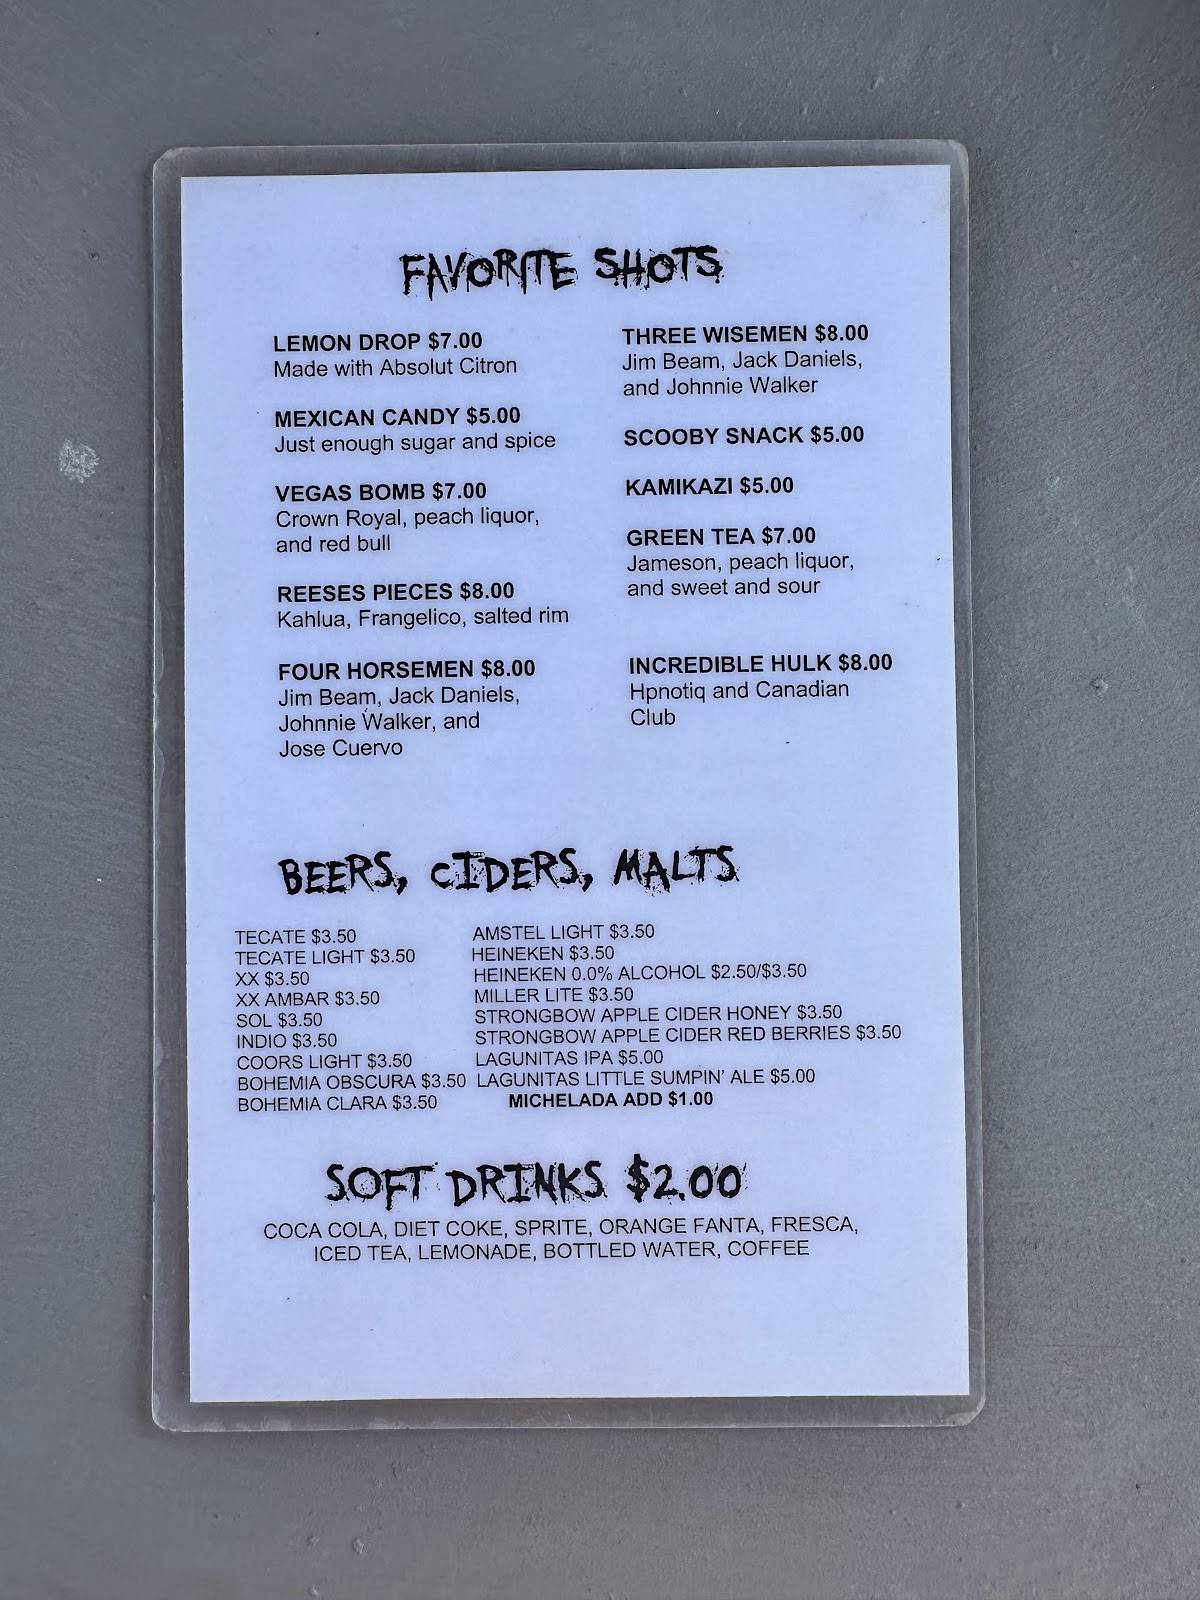 FAVORITE SHOTS
LEMON DROP $7.00
Made with Absolut Citron
MEXICAN CANDY $5.00
Just enough sugar and spice
VEGAS BOMB $7.00
Crown Royal, peach liquor,
and red bull
REESES PIECES $8.00
Kahlua, Frangelico, salted rim
FOUR HORSEMEN $8.00
Jim Beam, Jack Daniels,
Johnnie Walker, and
Jose Cuervo
THREE WISEMEN $8.00
Jim Beam, Jack Daniels,
and Johnnie Walker
SCOOBY SNACK $5.00
KAMIKAZI $5.00
GREEN TEA $7.00
Jameson, peach liquor,
and sweet and sour
INCREDIBLE HULK $8.00
Hpnotiq and Canadian
Club
BEERS, CIDERS, MALTS
TECATE $3.50
TECATE LIGHT $3.50
XX $3.50
XX AMBAR $3.50
SOL $3.50
INDIO $3.50
COORS LIGHT $3.50
BOHEMIA OBSCURA $3.50
BOHEMIA CLARA $3.50
AMSTEL LIGHT $3.50
HEINEKEN $3.50
HEINEKEN 0.0% ALCOHOL $2.50/$3.50
MILLER LITE $3.50
STRONGBOW APPLE CIDER HONEY $3.50
STRONGBOW APPLE CIDER RED BERRIES $3.50
LAGUNITAS IPA $5.00
LAGUNITAS LITTLE SUMPIN' ALE $5.00
MICHELADA ADD $1.00
SOFT DRINKS $2.00
COCA COLA, DIET COKE, SPRITE, ORANGE FANTA, FRESCA,
ICED TEA, LEMONADE, BOTTLED WATER, COFFEE